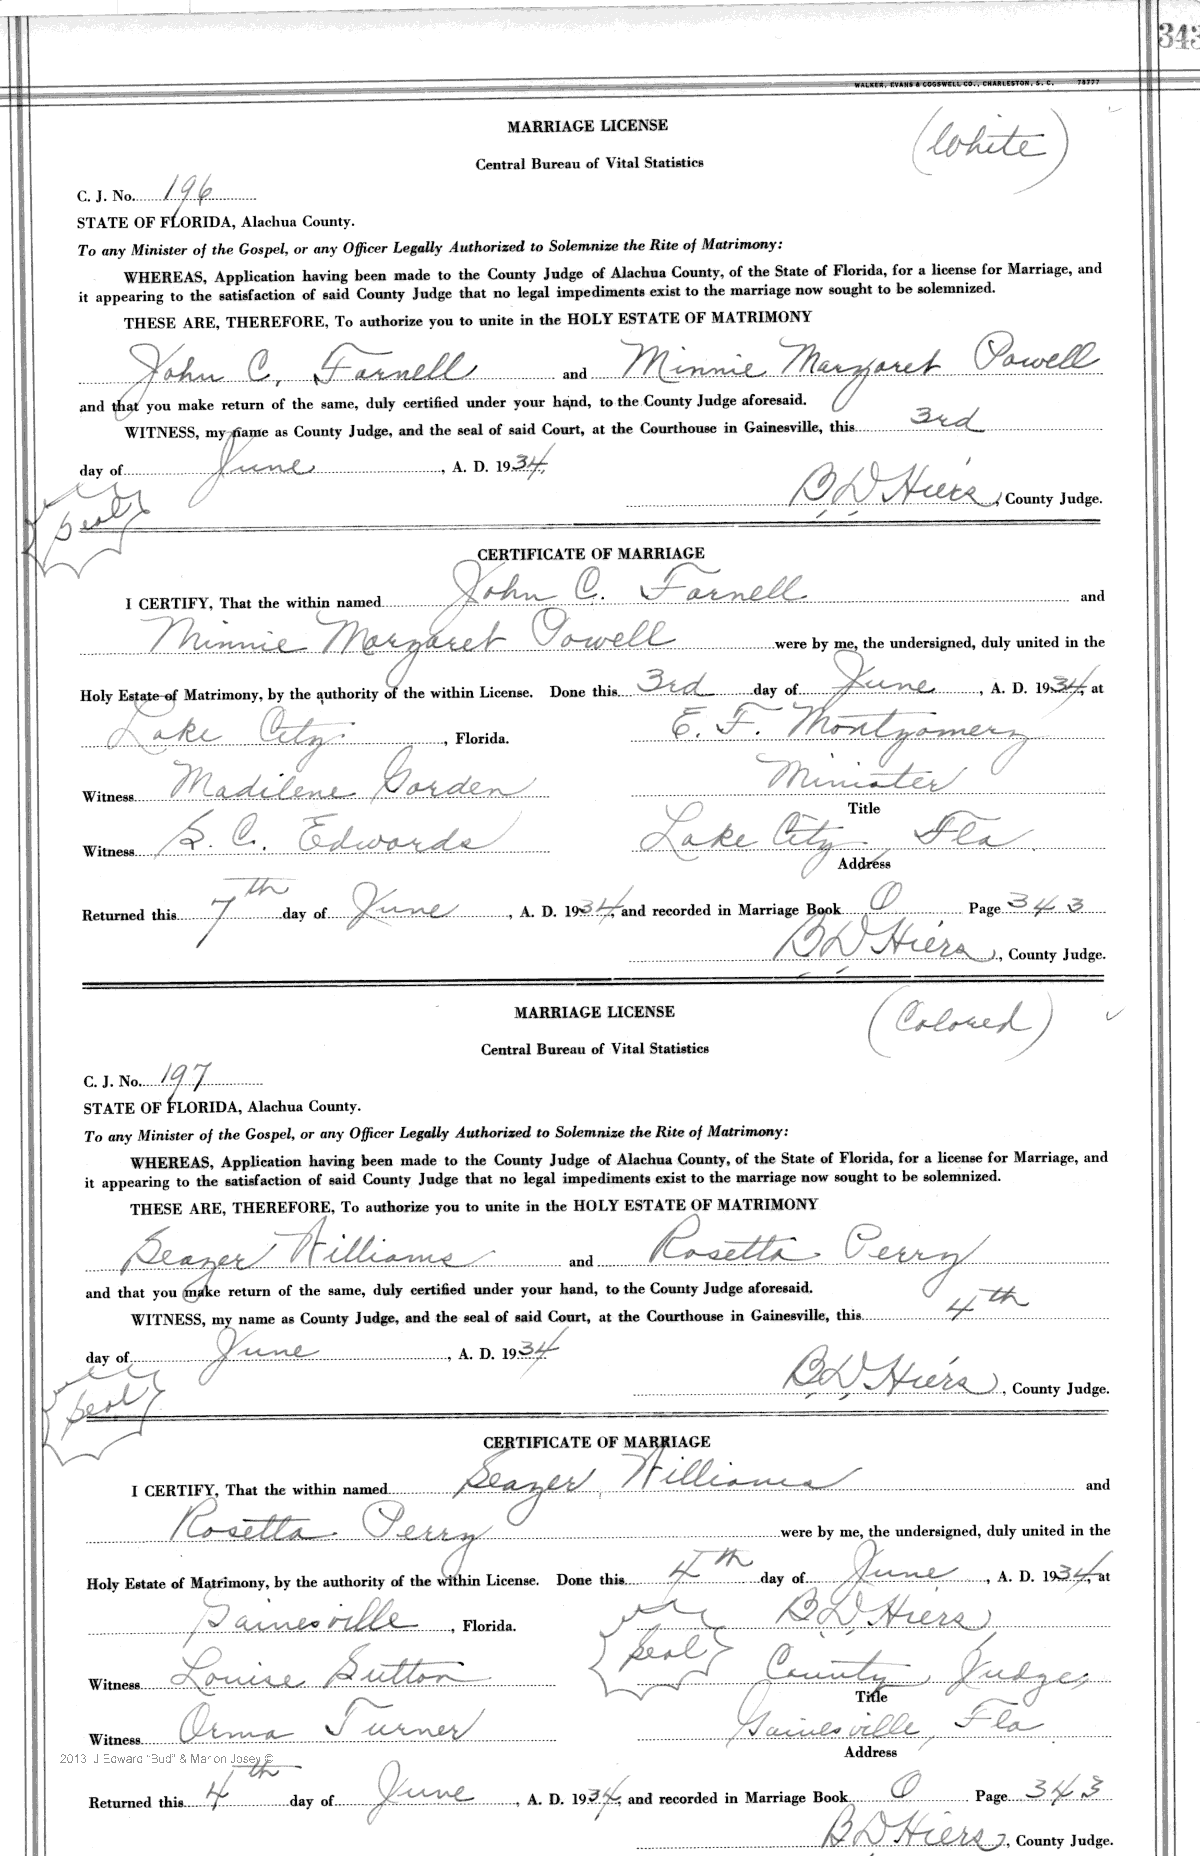 343
WALKER, EVANS & COGSWELL CO., CHARLESTON, S. C. 78777
MARRIAGE LICENSE
(White)
Central Bureau of Vital Statistics
C. J. No. 196
STATE OF FLORIDA, Alachua County.
To any Minister of the Gospel, or any Officer Legally Authorized to Solemnize the Rite of Matrimony:
WHEREAS, Application having been made to the County Judge of Alachua County, of the State of Florida, for a license for Marriage, and
it appearing to the satisfaction of said County Judge that no legal impediments exist to the marriage now sought to be solemnized.
THESE ARE, THEREFORE, To authorize you to unite in the HOLY ESTATE OF MATRIMONY
John C. Farnell and Minnie Margaret Powell
and that you make return of the same, duly certified under your hand, to the County Judge aforesaid.
WITNESS, my name as County Judge, and the seal of said Court, at the Courthouse in Gainesville, this 3rd
day of June, A. D. 1934.
B D Hiers, County Judge.
Seal
CERTIFICATE OF MARRIAGE
I CERTIFY, That the within named John C. Farnell and
Minnie Margaret Powell were by me, the undersigned, duly united in the
Holy Estate of Matrimony, by the authority of the within License. Done this 3rd day of June, A. D. 1934, at
Lake City, Florida. E. F. Montgomery
Witness Madilene Gorden Minister
Title
Witness S. C. Edwards Lake City Fla.
Address
Returned this 7th day of June, A. D. 1934, and recorded in Marriage Book O Page 343
B D Hiers, County Judge.
MARRIAGE LICENSE
(Colored)
Central Bureau of Vital Statistics
C. J. No. 197
STATE OF FLORIDA, Alachua County.
To any Minister of the Gospel, or any Officer Legally Authorized to Solemnize the Rite of Matrimony:
WHEREAS, Application having been made to the County Judge of Alachua County, of the State of Florida, for a license for Marriage, and
it appearing to the satisfaction of said County Judge that no legal impediments exist to the marriage now sought to be solemnized.
THESE ARE, THEREFORE, To authorize you to unite in the HOLY ESTATE OF MATRIMONY
Seazer Williams and Rosetta Perry
and that you make return of the same, duly certified under your hand, to the County Judge aforesaid.
WITNESS, my name as County Judge, and the seal of said Court, at the Courthouse in Gainesville, this 4th
day of June, A. D. 1934
B D Hiers, County Judge.
Seal
CERTIFICATE OF MARRIAGE
I CERTIFY, That the within named Seazer Williams and
Rosetta Perry were by me, the undersigned, duly united in the
Holy Estate of Matrimony, by the authority of the within License. Done this 4th day of June, A. D. 1934, at
Gainesville, Florida. B D Hiers
Seal
Witness Louise Sutton County Judge,
Title
Witness Orma Turner Gainesville, Fla
Address
2013 J Edward "Bud" & Marion Josey ©
Returned this 4th day of June, A. D. 1934, and recorded in Marriage Book O Page 343
B D Hiers, County Judge.